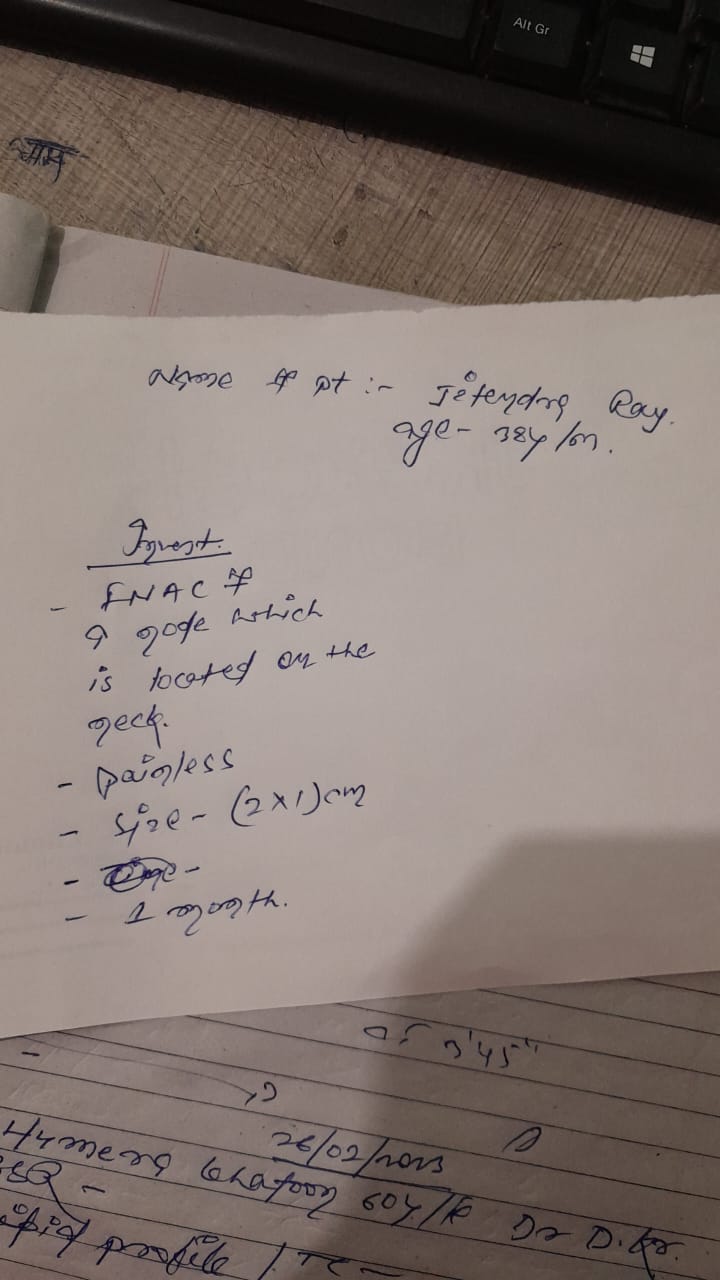 Alt Gr
Name of pt :- Jitendra Ray.
age - 38y/m.
Invest.
- FNAC of
a node which
is located on the
neck.
- painless
- size - (2x1)cm
-
- 1 month.
3'45"
26/02/2023
Humera Khatoon 60y/F Dr D.Kr.
profile / TC -